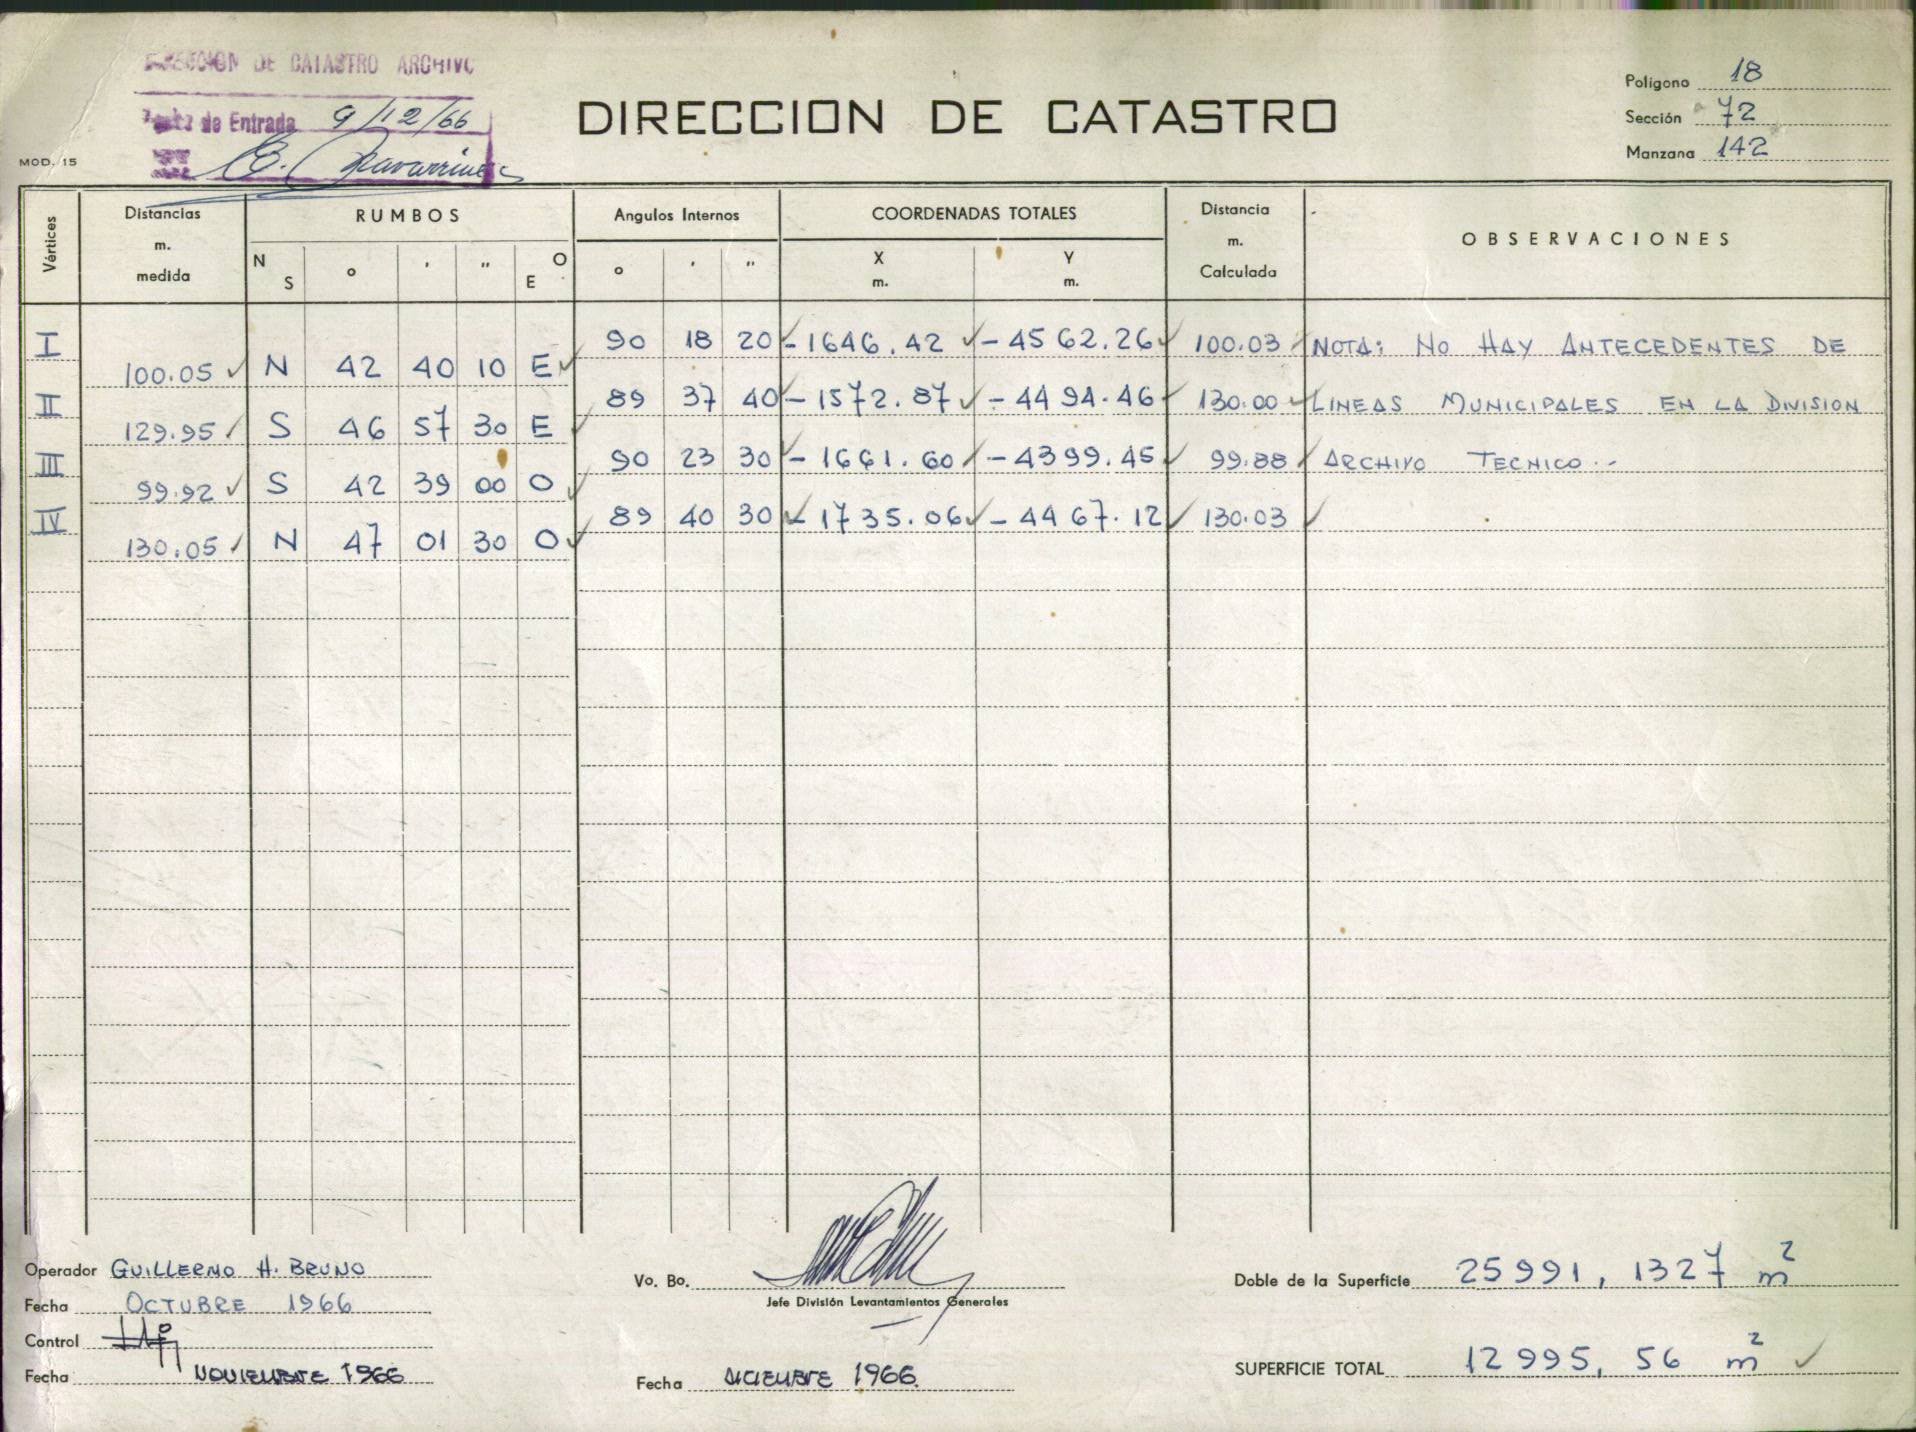 DIRECCION DE CATASTRO ARCHIVO
de Entrada 9/12/66
MOD. 15
DIRECCION DE CATASTRO
Polígono 18
Sección 72
Manzana 142
Vértices
Distancias m. medida
RUMBOS
N S ° ' " O E
Angulos Internos
° ' "
COORDENADAS TOTALES
X m. Y m.
Distancia m. Calculada
OBSERVACIONES
I 90 18 20 -1646.42 -4562.26 100.03 NOTA: NO HAY ANTECEDENTES DE
100.05 N 42 40 10 E
II 89 37 40 -1572.87 -4494.46 130.00 LINEAS MUNICIPALES EN LA DIVISION
129.95 S 46 57 30 E
III 90 23 30 -1661.60 -4399.45 99.88 ARCHIVO TECNICO.-
99.92 S 42 39 00 O
IV 89 40 30 -1735.06 -4467.12 130.03
130.05 N 47 01 30 O
Operador GUILLERMO H. BRUNO
Fecha OCTUBRE 1966
Control
Fecha NOVIEMBRE 1966
Vo. Bo.
Jefe División Levantamientos Generales
Fecha DICIEMBRE 1966.
Doble de la Superficie 25991,1327 m2
SUPERFICIE TOTAL 12995,56 m2